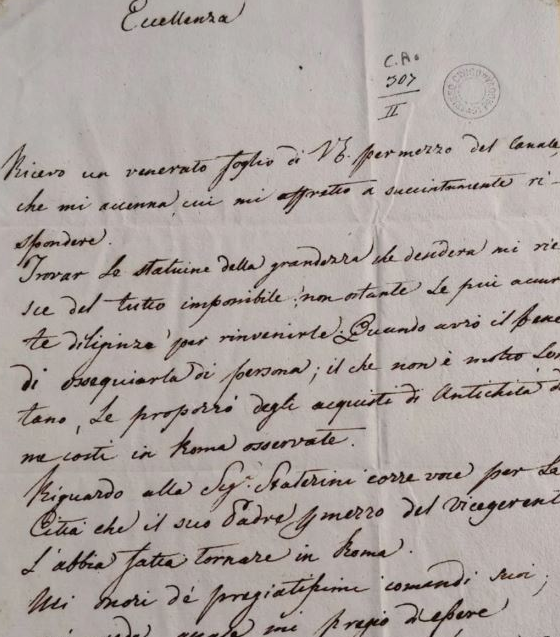 Eccellenza
C.A.
307
II
Ricevo un venerato foglio di V.E. per mezzo del Canale
che mi accenna, cui mi affretto a succintamente ri-
spondere.
Trovar le statuine della grandezza che desidera mi rie
sce del tutto impossibile, non ostante le più accur
te diligenze per rinvenirle. Quando avrò il bene
di ossequiarla di persona; il che non è molto lon
tano, Le proporrò degli acquisti di Antichità d
me costì in Roma osservate.
Riguardo alla Sigr. corre voce per la
Città che il suo Padre p mezzo del Vicegerent
l'abbia fatta tornare in Roma.
Mi onori de' pregiatissimi comandi suoi;
quale mi pregio d'essere